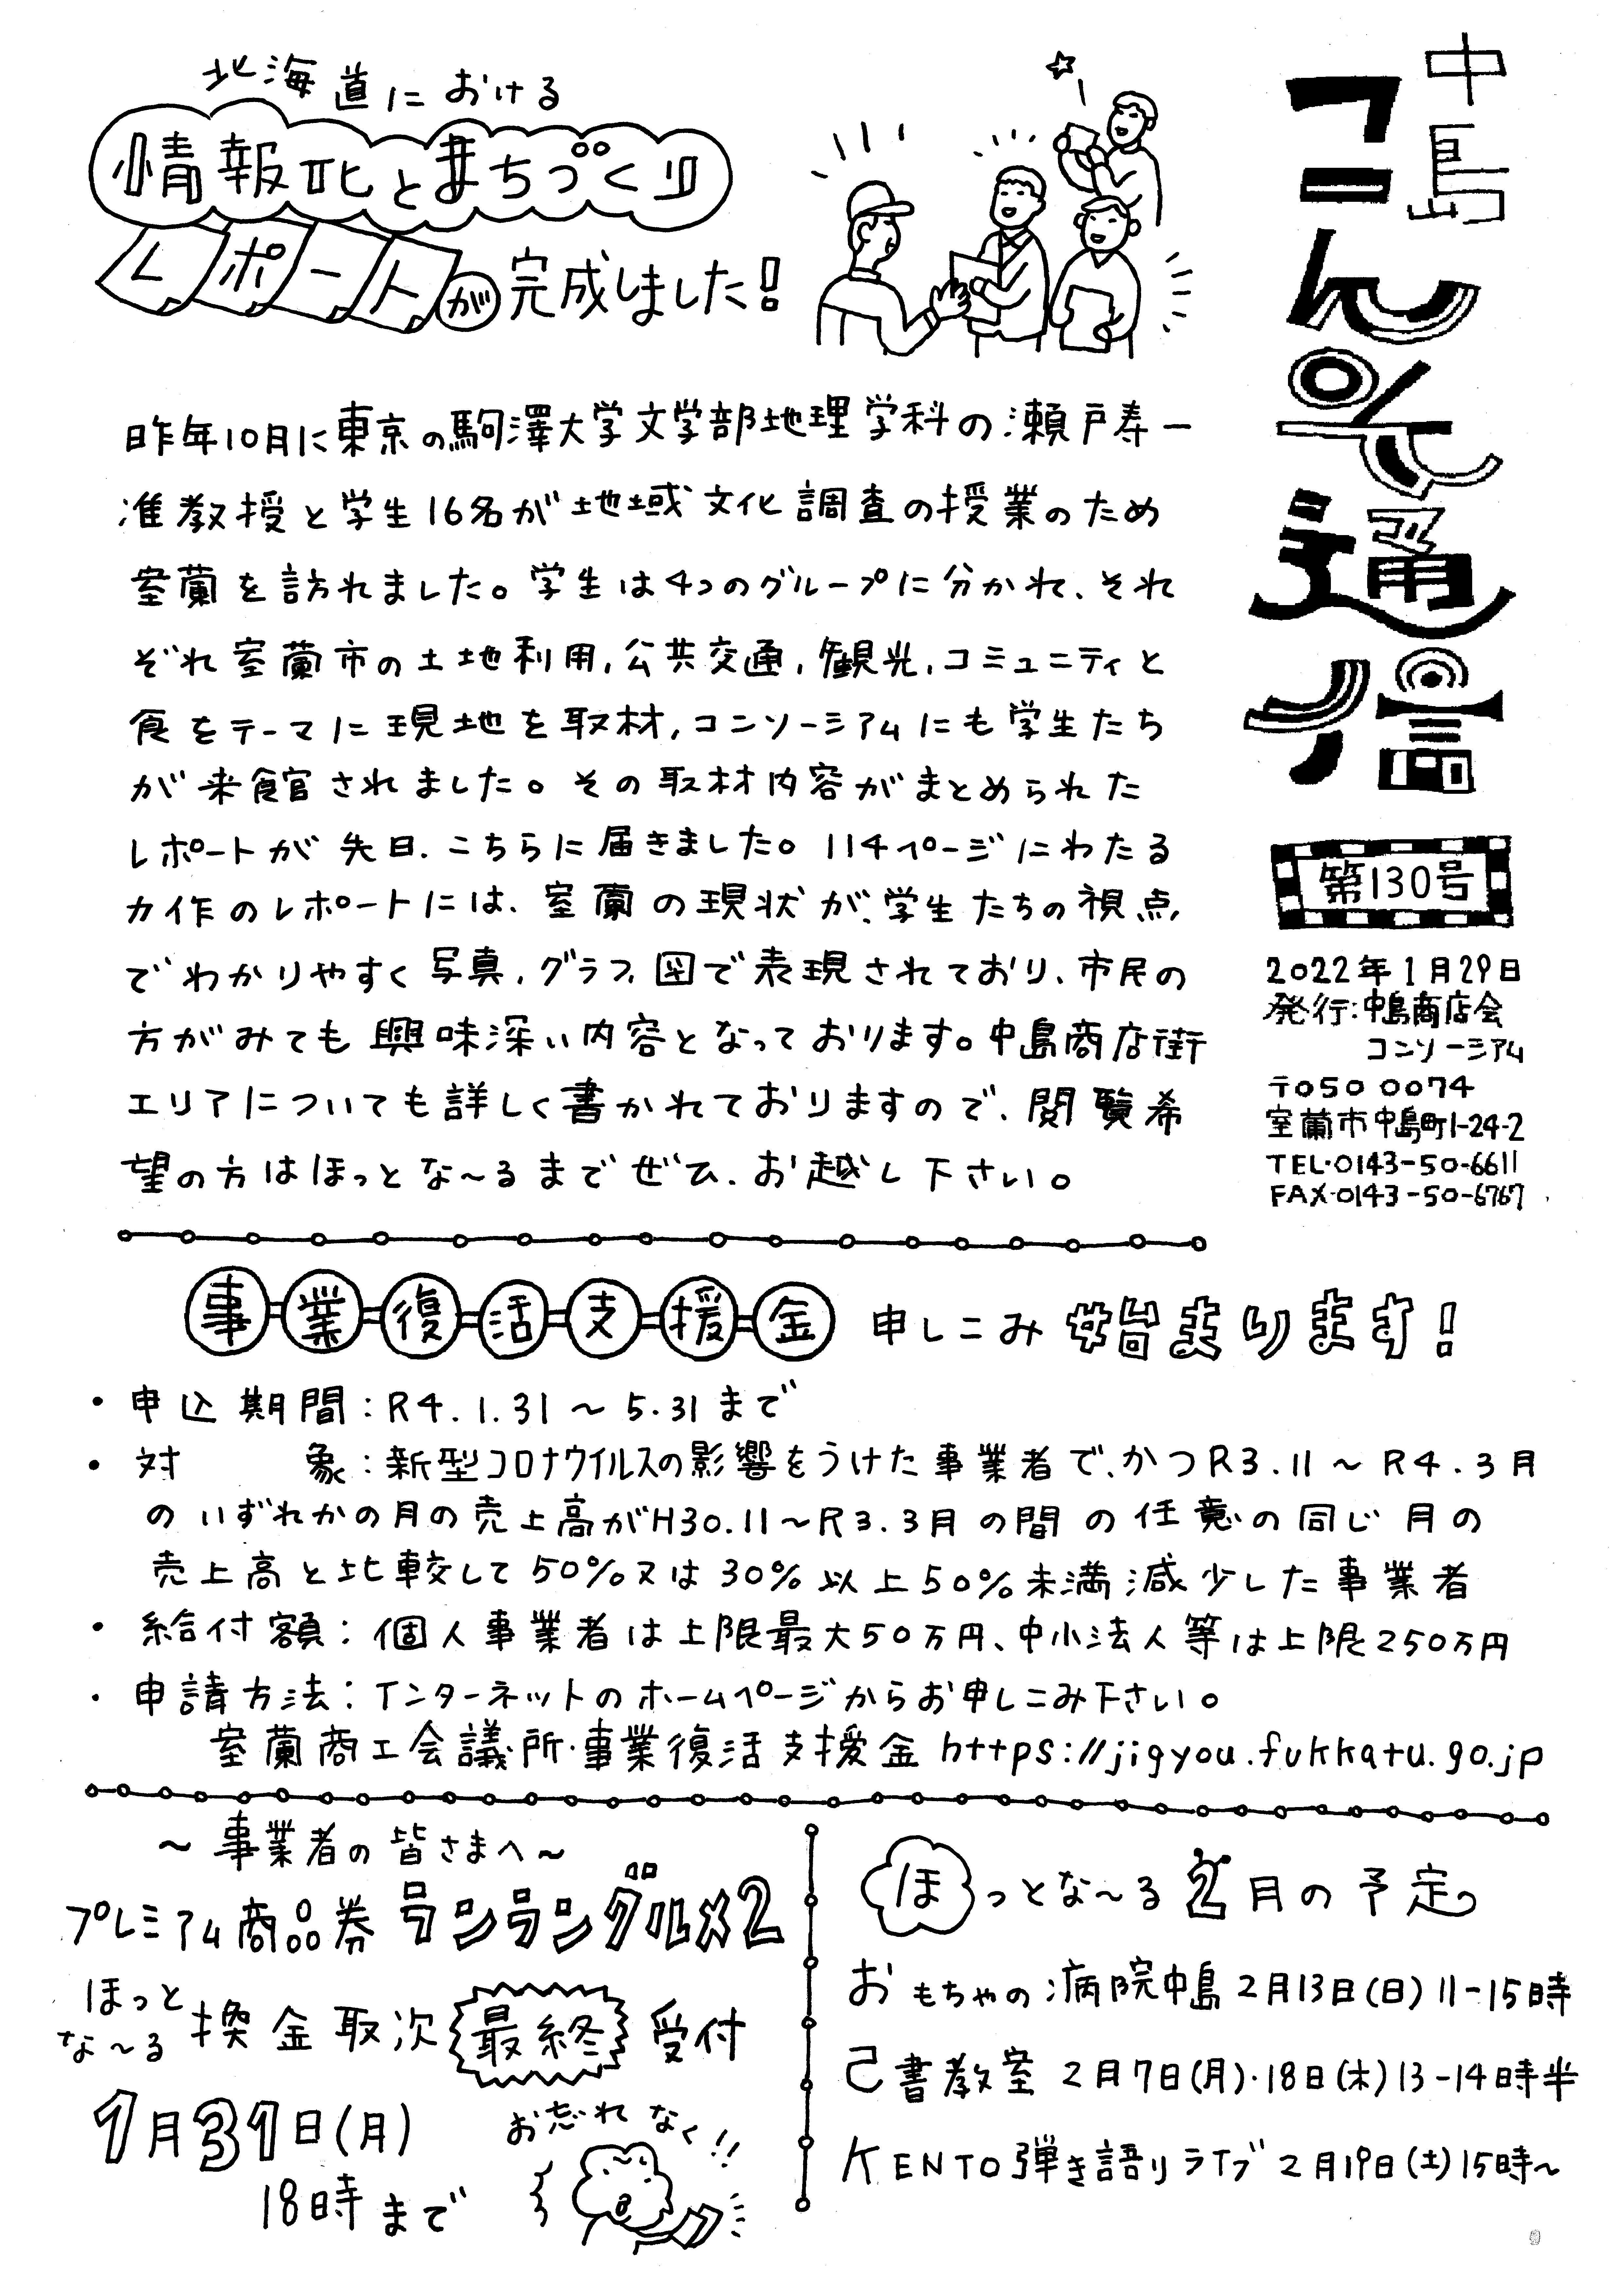 中島
コンそ通信
第130号
2022年1月29日
発行:中島商店会
コンソーシアム
〒050 0074
室蘭市中島町1-24-2
TEL・0143-50-6611
FAX・0143-50-6767
北海道における
情報化とまちづくり
レポートが完成しました!
昨年10月に東京の駒澤大学文学部地理学科の瀬戸寿一
准教授と学生16名が地域文化調査の授業のため
室蘭を訪れました。学生は4つのグループに分かれ、それ
ぞれ室蘭市の土地利用,公共交通,観光,コミュニティと
食をテーマに現地を取材,コンソーシアムにも学生たち
が来館されました。その取材内容がまとめられた
レポートが先日、こちらに届きました。114ページにわたる
力作のレポートには、室蘭の現状が、学生たちの視点
でわかりやすく写真,グラフ,図で表現されており、市民の
方がみても興味深い内容となっております。中島商店街
エリアについても詳しく書かれておりますので、閲覧希
望の方はほっとな〜るまでぜひ、お越し下さい。
事業復活支援金 申しこみ始まります!
・申込期間:R4.1.31〜5.31まで
・対 象:新型コロナウイルスの影響をうけた事業者で、かつR3.11〜R4.3月
のいずれかの月の売上高がH30.11〜R3.3月の間の任意の同じ月の
売上高と比較して50%又は30%以上50%未満減少した事業者
・給付額:個人事業者は上限最大50万円、中小法人等は上限250万円
・申請方法:インターネットのホームページからお申しこみ下さい。
室蘭商工会議所・事業復活支援金 https://jigyou.fukkatu.go.jp
〜事業者の皆さまへ〜
プレミアム商品券ランラングルメ2
ほっとな〜る 換金取次 最終 受付
1月31日(月)
18時まで
お忘れなく!!
ほっとな〜る2月の予定
おもちゃの病院中島2月13日(日)11-15時
己書教室 2月7日(月)・18日(木)13-14時半
KENTO弾き語りライブ2月19日(土)15時〜